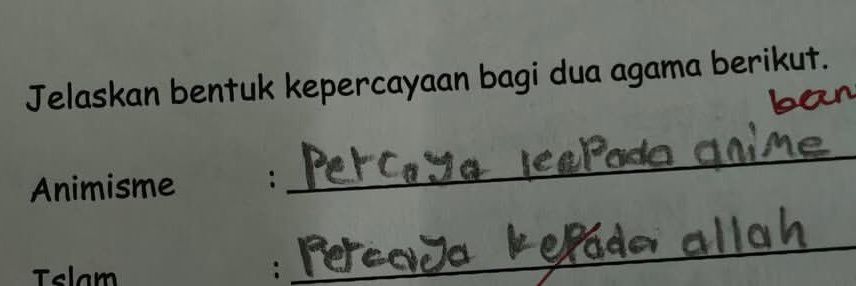 Jelaskan bentuk kepercayaan bagi dua agama berikut.
ban
Animisme : Percaya kepada anime
Islam : Percaya kepada allah